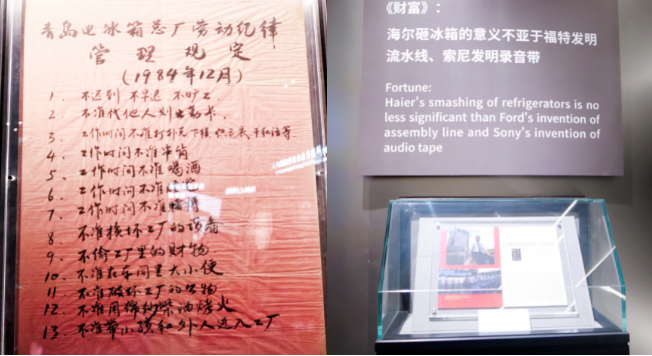 青岛电冰箱总厂劳动纪律
管理规定
(1984年12月)
1. 不迟到 不早退 不旷工
2. 不准代他人划出勤
3. 工作时间不准打扑克下棋 织毛衣 干私活等.
4. 工作时间不准串岗
5. 工作时间不准喝酒
6. 工作时间不准
7. 工作时间不准赌博
8. 不准损坏工厂的设备
9. 不偷工厂里的财物
10 不准在车间里大小便
11 不准破坏工厂的公物
12 不准用棉纱柴油烤火
13 不准带小孩和外人进入工厂
《财富》:
海尔砸冰箱的意义不亚于福特发明
流水线、索尼发明录音带
Fortune:
Haier's smashing of refrigerators is no
less significant than Ford's invention of
assembly line and Sony's invention of
audio tape